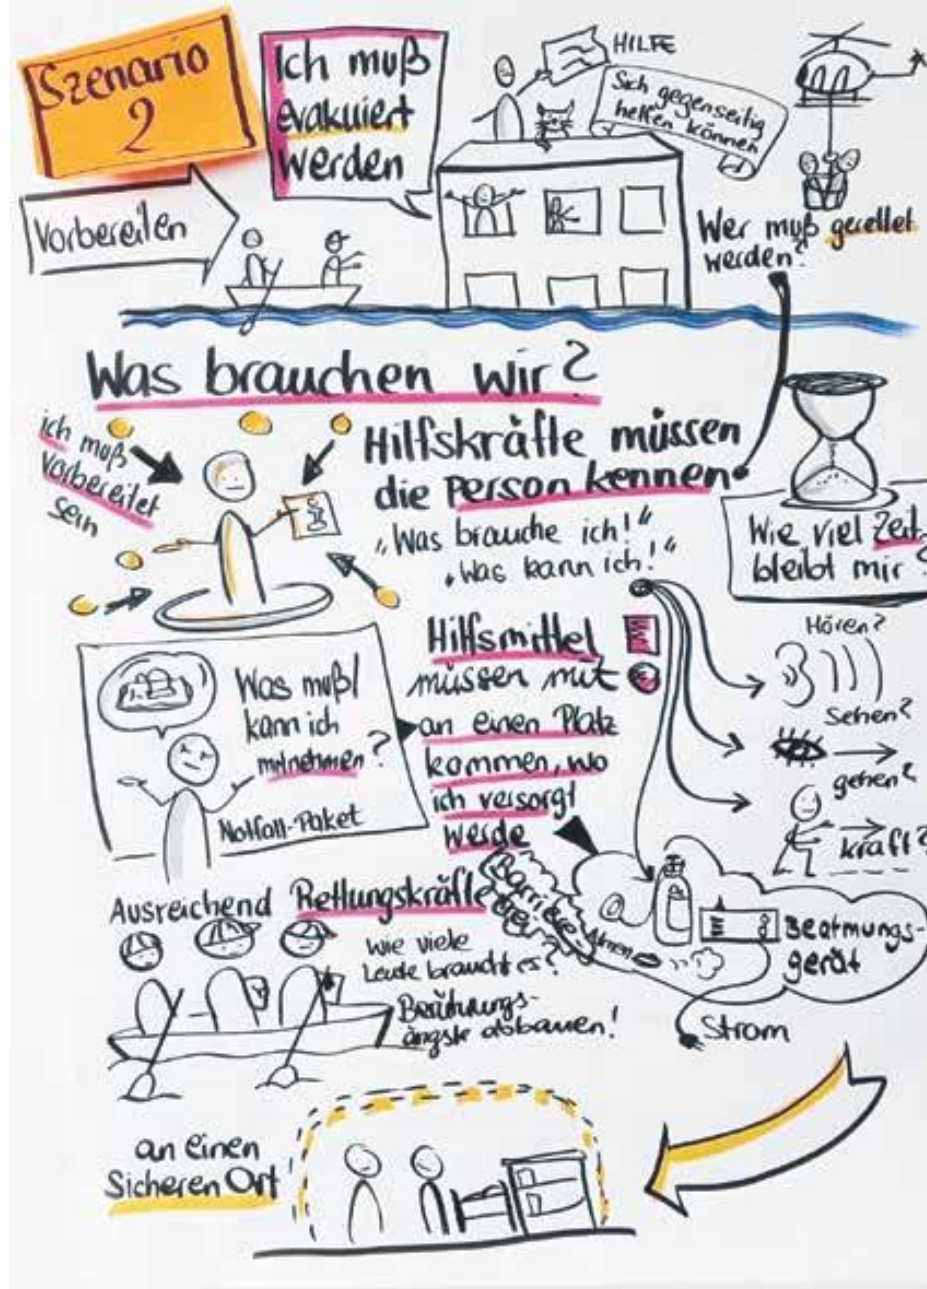 Szenario
2
Ich muß
evakuiert
werden
HILFE
Sich gegenseitig
helfen können
Vorbereiten
Wer muß gerettet
werden?
Was brauchen wir?
ich muß
vorbereitet
sein
Hilfskräfte müssen
die Person kennen
"Was brauche ich!"
"Was kann ich!"
Wie viel Zeit
bleibt mir?
Hilfsmittel
müssen mit
an einen Platz
kommen, wo
ich versorgt
werde
Hören?
Sehen?
gehen?
kraft?
Was muß/
kann ich
mitnehmen?
Notfall-Paket
Barriere-
frei
Atmen
Beatmungs-
gerät
Strom
Ausreichend Rettungskräfte
Wie viele
Leute braucht es?
Berührungs-
ängste abbauen!
an einen
Sicheren Ort